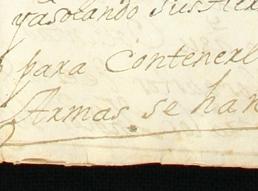 yasolando sus tier
para Contenerl
Armas se han